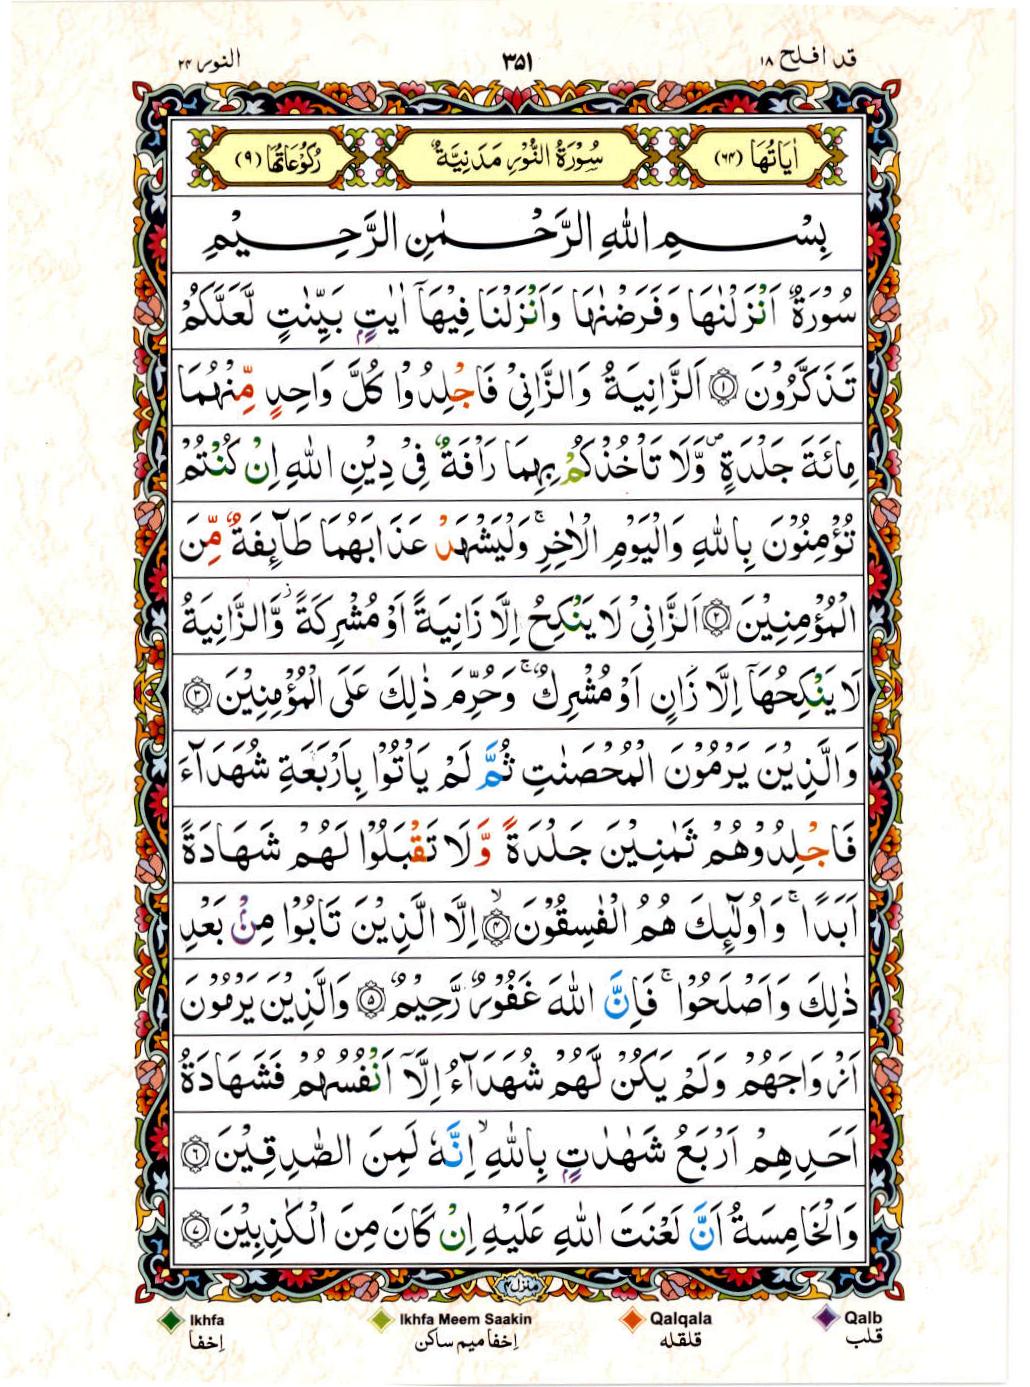 قد افلح ۱۸
۳۵۱
النور ۲۴
اٰیَاتُهَا (۶۴)
سُوْرَةُ النُّوْرِ مَدَنِیَّةٌ
رُكُوْعَاتُهَا (۹)
بِسْمِ اللّٰهِ الرَّحْمٰنِ الرَّحِیْمِ
سُوْرَةٌ اَنْزَلْنٰهَا وَفَرَضْنٰهَا وَاَنْزَلْنَا فِیْهَاۤ اٰیٰتٍۭ بَیِّنٰتٍ لَّعَلَّكُمْ
تَذَكَّرُوْنَ ۝۱ اَلزَّانِیَةُ وَالزَّانِیْ فَاجْلِدُوْا كُلَّ وَاحِدٍ مِّنْهُمَا
مِائَةَ جَلْدَةٍ ۪ وَّلَا تَاْخُذْكُمْ بِهِمَا رَاْفَةٌ فِیْ دِیْنِ اللّٰهِ اِنْ كُنْتُمْ
تُؤْمِنُوْنَ بِاللّٰهِ وَالْیَوْمِ الْاٰخِرِ ۚ وَلْیَشْهَدْ عَذَابَهُمَا طَآئِفَةٌ مِّنَ
الْمُؤْمِنِیْنَ ۝۲ اَلزَّانِیْ لَا یَنْكِحُ اِلَّا زَانِیَةً اَوْ مُشْرِكَةً ؗ وَّالزَّانِیَةُ
لَا یَنْكِحُهَاۤ اِلَّا زَانٍ اَوْ مُشْرِكٌ ۚ وَحُرِّمَ ذٰلِكَ عَلَی الْمُؤْمِنِیْنَ ۝۳
وَالَّذِیْنَ یَرْمُوْنَ الْمُحْصَنٰتِ ثُمَّ لَمْ یَاْتُوْا بِاَرْبَعَةِ شُهَدَآءَ
فَاجْلِدُوْهُمْ ثَمٰنِیْنَ جَلْدَةً وَّلَا تَقْبَلُوْا لَهُمْ شَهَادَةً
اَبَدًا ۚ وَاُولٰٓئِكَ هُمُ الْفٰسِقُوْنَ ۝۴ۙ اِلَّا الَّذِیْنَ تَابُوْا مِنْۢ بَعْدِ
ذٰلِكَ وَاَصْلَحُوْا ۚ فَاِنَّ اللّٰهَ غَفُوْرٌ رَّحِیْمٌ ۝۵ وَالَّذِیْنَ یَرْمُوْنَ
اَزْوَاجَهُمْ وَلَمْ یَكُنْ لَّهُمْ شُهَدَآءُ اِلَّاۤ اَنْفُسُهُمْ فَشَهَادَةُ
اَحَدِهِمْ اَرْبَعُ شَهٰدٰتٍۭ بِاللّٰهِ ۙ اِنَّهٗ لَمِنَ الصّٰدِقِیْنَ ۝۶
وَالْخَامِسَةُ اَنَّ لَعْنَتَ اللّٰهِ عَلَیْهِ اِنْ كَانَ مِنَ الْكٰذِبِیْنَ ۝۷
منزل ۴
Ikhfa
Ikhfa Meem Saakin
Qalqala
Qalb
اِخفا
اِخفا میم ساکن
قلقله
قلب